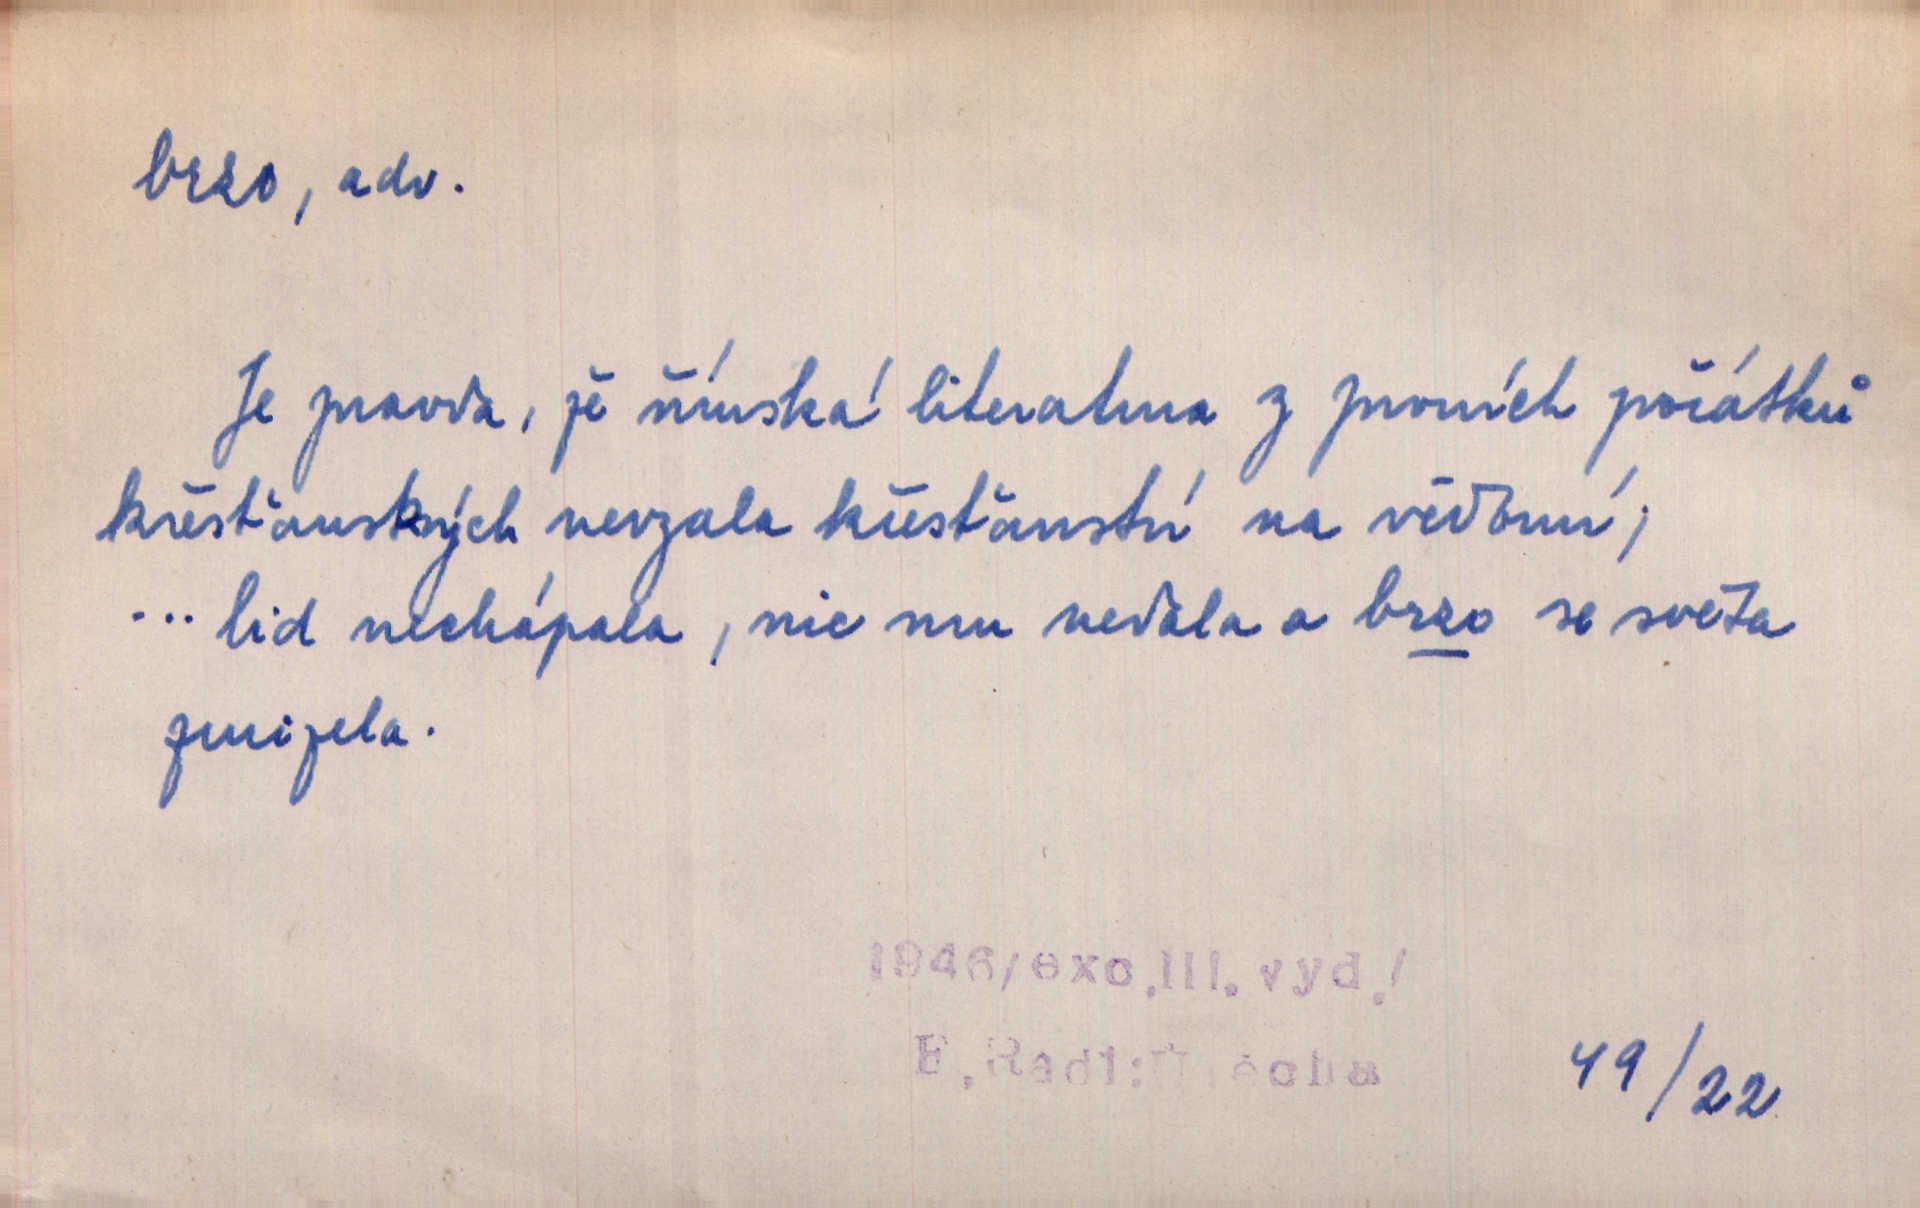 brzo, adv.
Je pravda, že římská literatura z prvních počátků
křesťanských nevzala křesťanství na vědomí;
... lid nechápala, nic mu nedala a brzo se světa
zmizela.
1946/exc.III.vyd./
E.Rádl:Útěcha
49/22